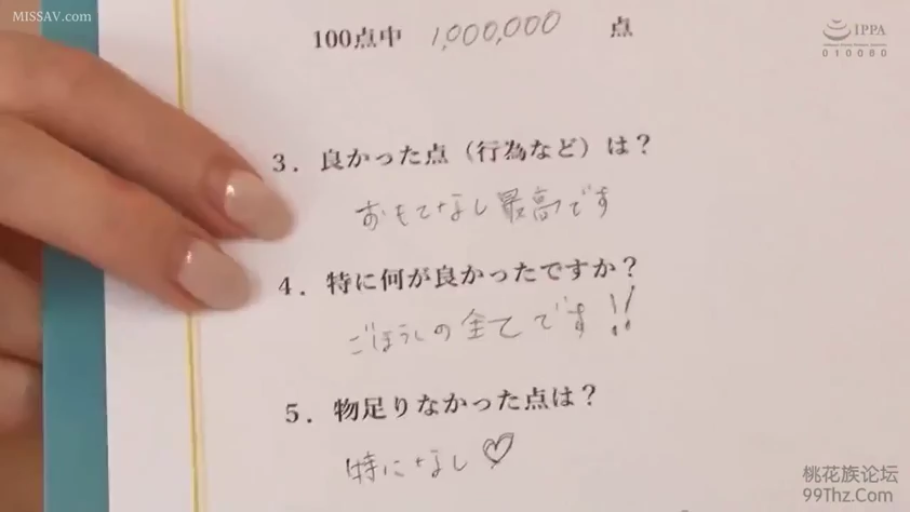 MISSAV.COM
100点中 1,000,000 点
IPPA
010080
3．良かった点（行為など）は？
おもてなし最高です
4．特に何が良かったですか？
ごほうしの全てです!!
5．物足りなかった点は？
特になし♡
桃花族论坛
99Thz.Com